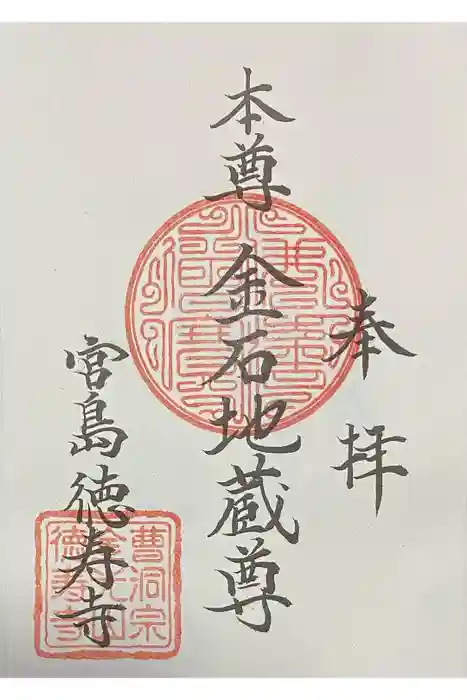 奉拝
本尊 金石地蔵尊
宮島徳寿寺
曹洞宗
徳寿寺